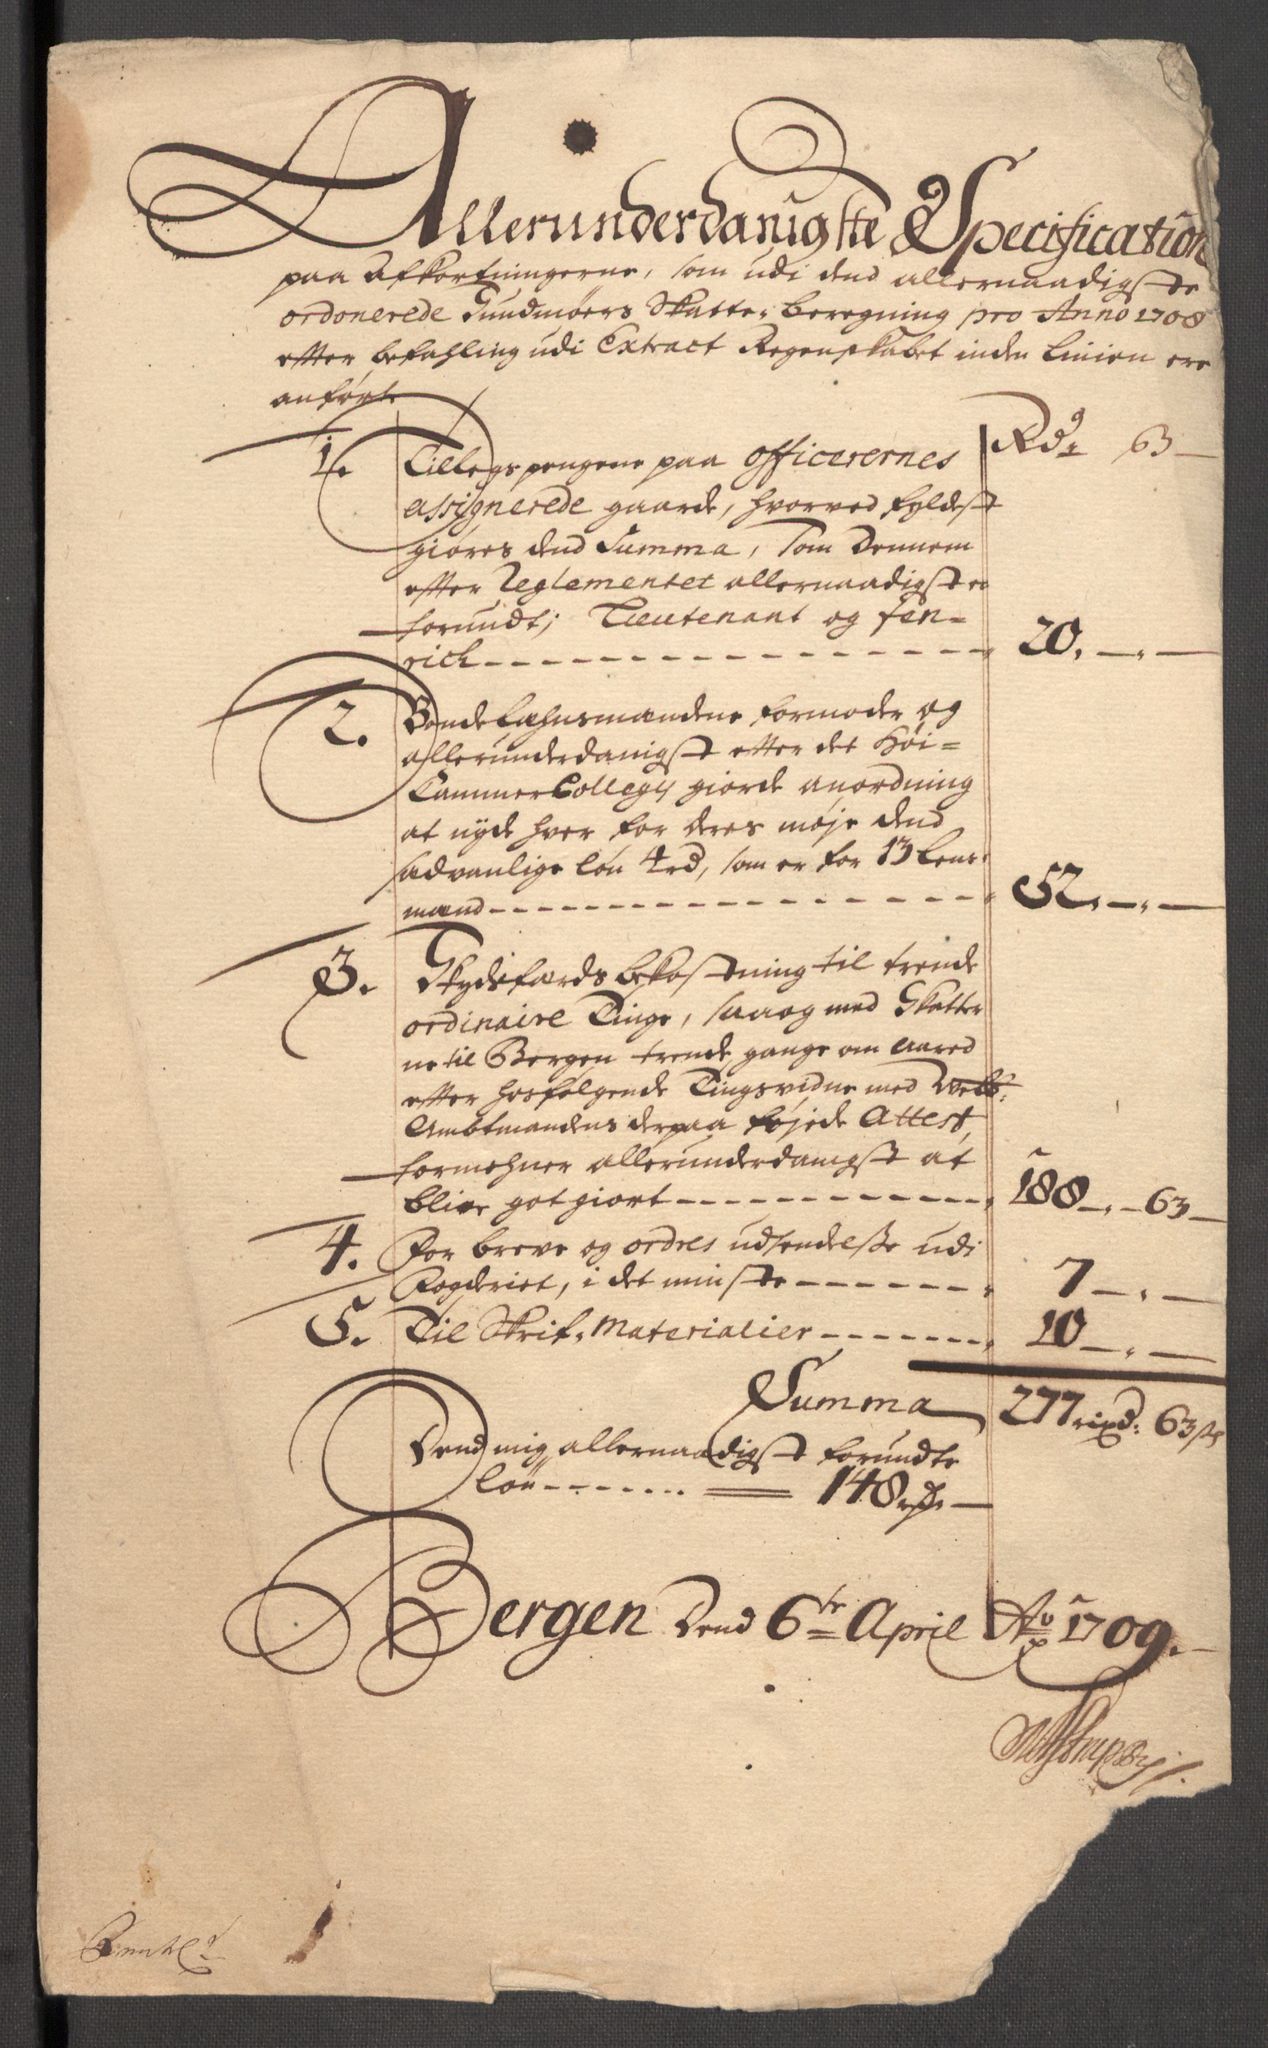 Allerunderdanigste Specification
paa Afkortningerne, som udi dend allernaadigste
ordonerede Sundmøers Skatte, beregning pro Anno 1708
efter befahling udi Extract Regenskabet inden Linien ere
anført.
Rdr ß
1. Tillegspengene paa officerernes
assignerede gaarde, hvorved fyldest
giøres dend Summa, som dennem
efter Reglementet allernaadigst er
forundt; Lieutenant og fen=
rich 20.
2. Bondelehnsmændene formoder og
allerunderdanigst efter det Høi=
Cammer Collegy giorde anordning
at nyde hver for deres møje dend
sædvanlige løn 4rd, som er for 13 Lens
mænd 52.
3. Skydsfærds bekostning til trende
ordinaire Tinge, saa og med Skatter
ne til Bergen trende gange om aared
efter hosfølgende Tingsvidne med Welb:
Ambtmandens derpaa føjede Attest,
formehner allerunderdanigst at
blive got giort 188. 63
4. For breve og ordres udsendelße udi
Fogderiet, i det minste 7
5. Til Skrif, Materialier 10
Summa 277 rixd: 63 ß
Dend mig allernaadigst forundte
løn 148 rd
Bergen Dend 6te April Ao 1709.